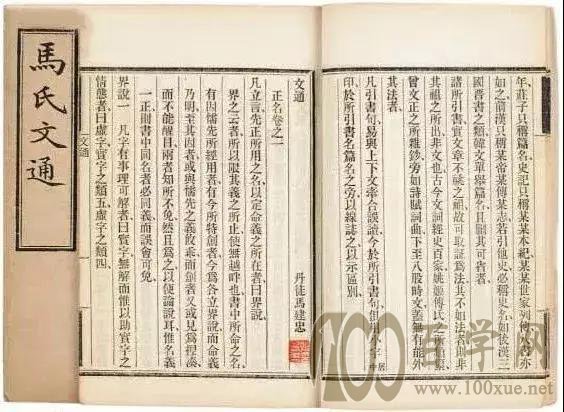 馬氏文通
年莊子只稱篇名史記只稱某某本紀某某世家列傳八書亦
如之前漢只稱某帝某傳某志若引他史必稱史名如後漢三
國晉書之類韓文單舉篇名且刪其可省者
諸所引書實文章不祧之祖故可取証爲法其不如法者則非
其祖之所出非文也古今文詞經史百家姚姬傳氏之所類纂
曾文正之所雜鈔旁如詩賦詞曲下至八股時文蓋無有能外
其法者
凡引書句易與上下文牽合誤讀今於所引書句俱用小字居中
印於所引書名篇名之旁以線誌之以示區別
文通
正名卷之一
丹徒馬建忠
凡立言先正所用之名以定命義之所在者曰界說
界之云者所以限其義之所止使無越畔也書中所命之名
有因儒先所經用者有今所特創者今爲各立界說而命義
乃明至其因者或與儒先之義攸乖而創者又或見爲捏湊
而不能醒目兩者知所不免然且爲之以便論說耳惟名義
一正則書中同名者必同義而誤會可免
界說一 凡字有事理可解者曰實字無解而惟以助實字之
情態者曰虛字實字之類五虛字之類四
文通
100百学网
www.100xue.net